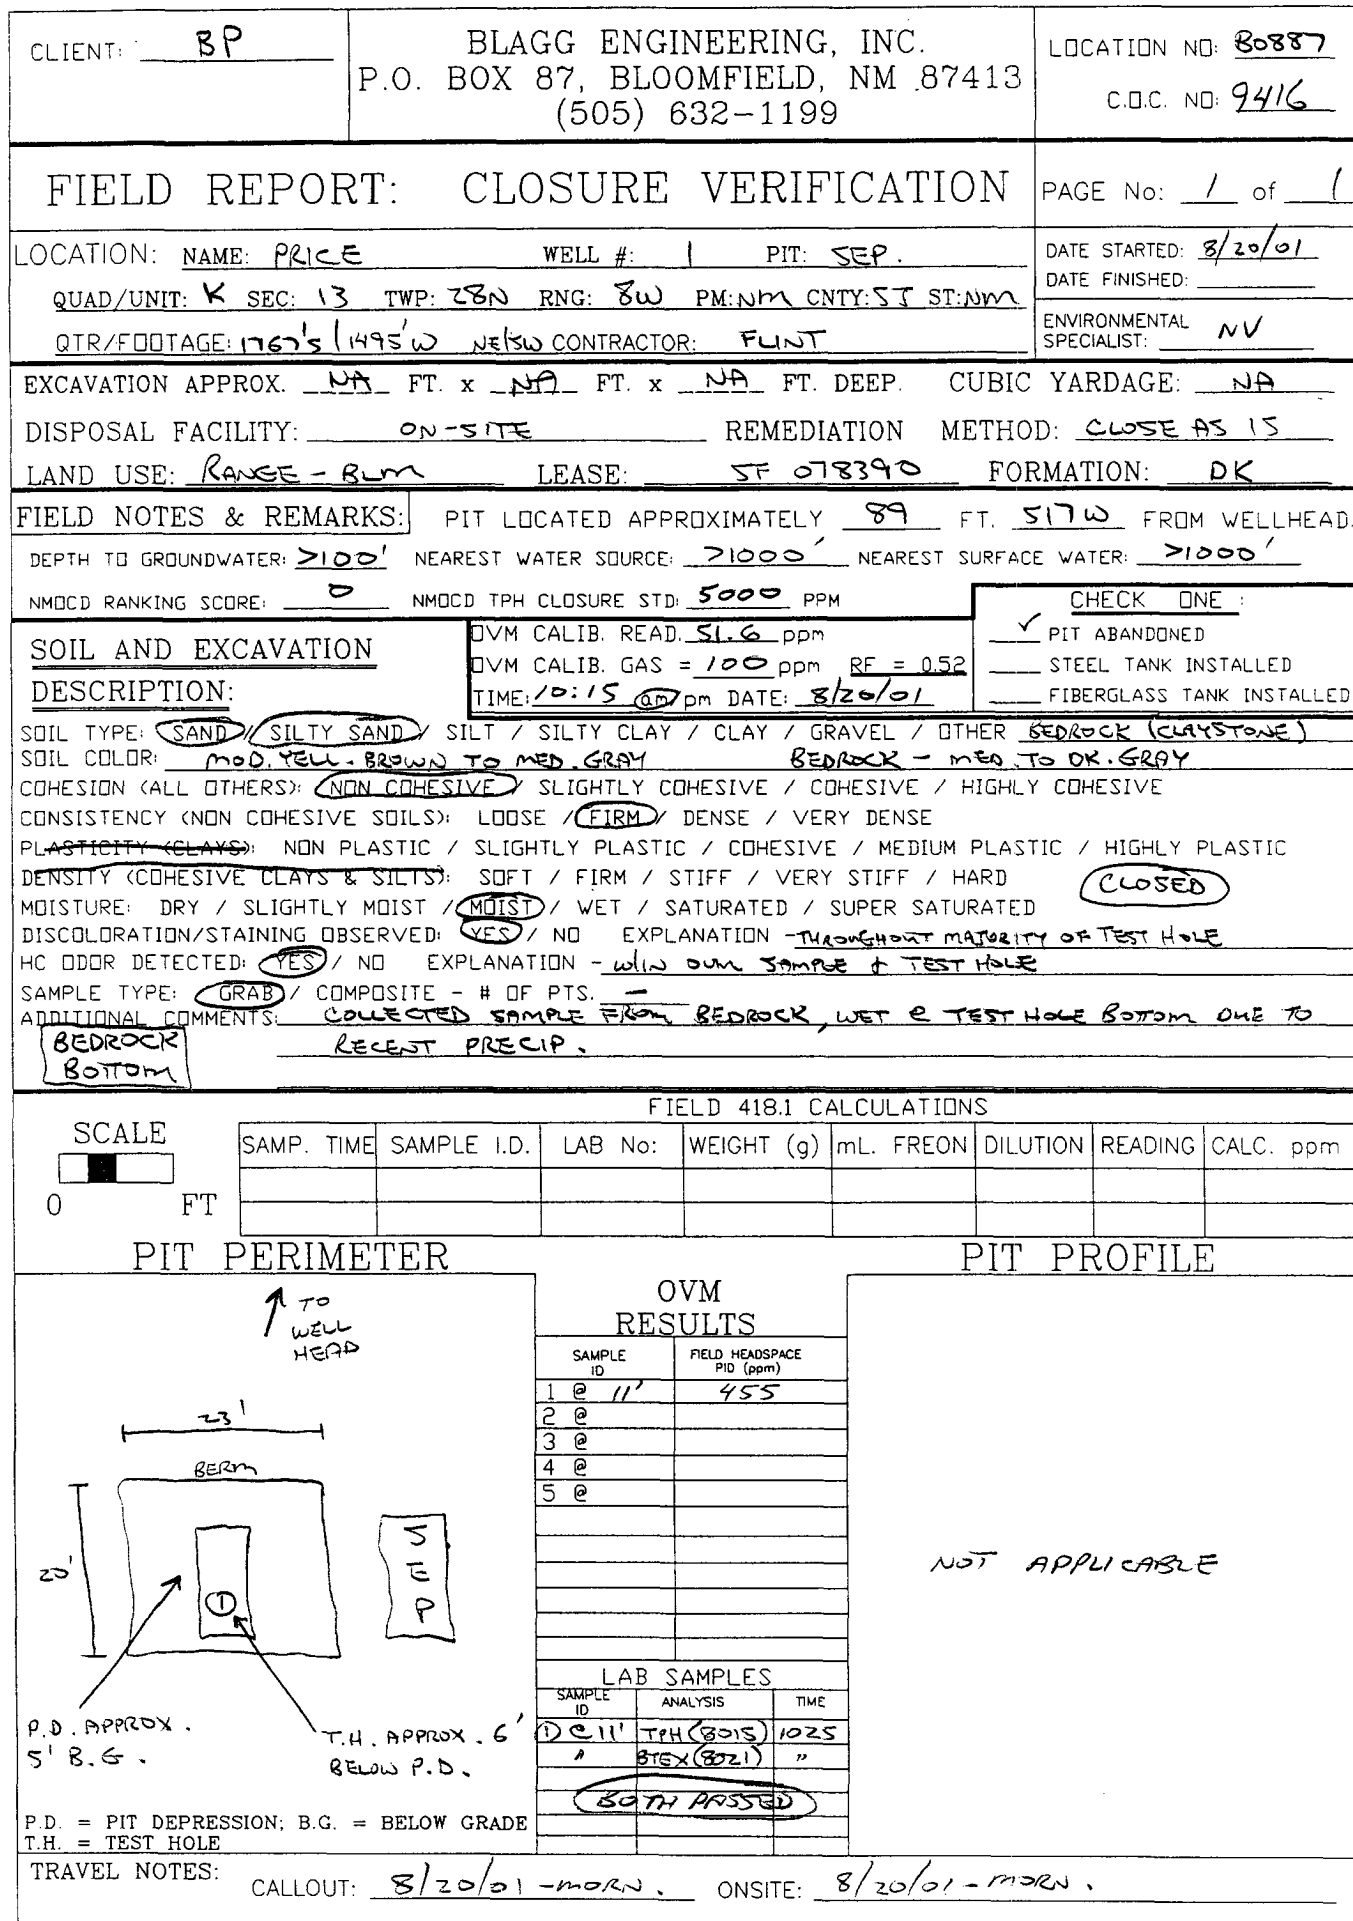 CLIENT: BP
BLAGG ENGINEERING, INC.
P.O. BOX 87, BLOOMFIELD, NM 87413
(505) 632-1199
LOCATION NO: B0887
C.O.C. NO: 9416
FIELD REPORT: CLOSURE VERIFICATION
PAGE No: 1 of 1
LOCATION: NAME: PRICE WELL #: 1 PIT: SEP.
QUAD/UNIT: K SEC: 13 TWP: 28N RNG: 8W PM: NM CNTY: SJ ST: NM
QTR/FOOTAGE: 1767'S / 1495'W NE/SW CONTRACTOR: FLINT
DATE STARTED: 8/20/01
DATE FINISHED:
ENVIRONMENTAL
SPECIALIST: NV
EXCAVATION APPROX. NA FT. x NA FT. x NA FT. DEEP. CUBIC YARDAGE: NA
DISPOSAL FACILITY: ON-SITE REMEDIATION METHOD: CLOSE AS IS
LAND USE: RANGE - BLM LEASE: SF 078390 FORMATION: DK
FIELD NOTES & REMARKS: PIT LOCATED APPROXIMATELY 89 FT. S17W FROM WELLHEAD.
DEPTH TO GROUNDWATER: >100' NEAREST WATER SOURCE: >1000' NEAREST SURFACE WATER: >1000'
NMOCD RANKING SCORE: 0 NMOCD TPH CLOSURE STD: 5000 PPM
CHECK ONE :
✓ PIT ABANDONED
STEEL TANK INSTALLED
FIBERGLASS TANK INSTALLED
SOIL AND EXCAVATION
DESCRIPTION:
OVM CALIB. READ. 51.6 ppm
OVM CALIB. GAS = 100 ppm RF = 0.52
TIME: 10:15 am/pm DATE: 8/20/01
SOIL TYPE: SAND / SILTY SAND / SILT / SILTY CLAY / CLAY / GRAVEL / OTHER BEDROCK (CLAYSTONE)
SOIL COLOR: MOD. YELL-BROWN TO MED. GRAY BEDROCK - MED. TO DK. GRAY
COHESION (ALL OTHERS): NON COHESIVE / SLIGHTLY COHESIVE / COHESIVE / HIGHLY COHESIVE
CONSISTENCY (NON COHESIVE SOILS): LOOSE / FIRM / DENSE / VERY DENSE
PLASTICITY (CLAYS): NON PLASTIC / SLIGHTLY PLASTIC / COHESIVE / MEDIUM PLASTIC / HIGHLY PLASTIC
DENSITY (COHESIVE CLAYS & SILTS): SOFT / FIRM / STIFF / VERY STIFF / HARD
CLOSED
MOISTURE: DRY / SLIGHTLY MOIST / MOIST / WET / SATURATED / SUPER SATURATED
DISCOLORATION/STAINING OBSERVED: YES / NO EXPLANATION - THROUGHOUT MAJORITY OF TEST HOLE
HC ODOR DETECTED: YES / NO EXPLANATION - W/IN OVM SAMPLE & TEST HOLE
SAMPLE TYPE: GRAB / COMPOSITE - # OF PTS. -
ADDITIONAL COMMENTS: COLLECTED SAMPLE FROM BEDROCK, WET @ TEST HOLE BOTTOM DUE TO
RECENT PRECIP.
BEDROCK
BOTTOM
FIELD 418.1 CALCULATIONS
SCALE
0 FT
SAMP. TIME SAMPLE I.D. LAB No: WEIGHT (g) mL. FREON DILUTION READING CALC. ppm
PIT PERIMETER
TO
WELL
HEAD
23'
BERM
20'
1
SEP
P.D. APPROX.
5' B.G.
T.H. APPROX. 6'
BELOW P.D.
P.D. = PIT DEPRESSION; B.G. = BELOW GRADE
T.H. = TEST HOLE
OVM
RESULTS
SAMPLE ID FIELD HEADSPACE PID (ppm)
1 @ 11' 455
2 @
3 @
4 @
5 @
LAB SAMPLES
SAMPLE ID ANALYSIS TIME
① @ 11' TPH (8015) 1025
" BTEX (8021) "
BOTH PASSED
PIT PROFILE
NOT APPLICABLE
TRAVEL NOTES: CALLOUT: 8/20/01 - MORN. ONSITE: 8/20/01 - MORN.